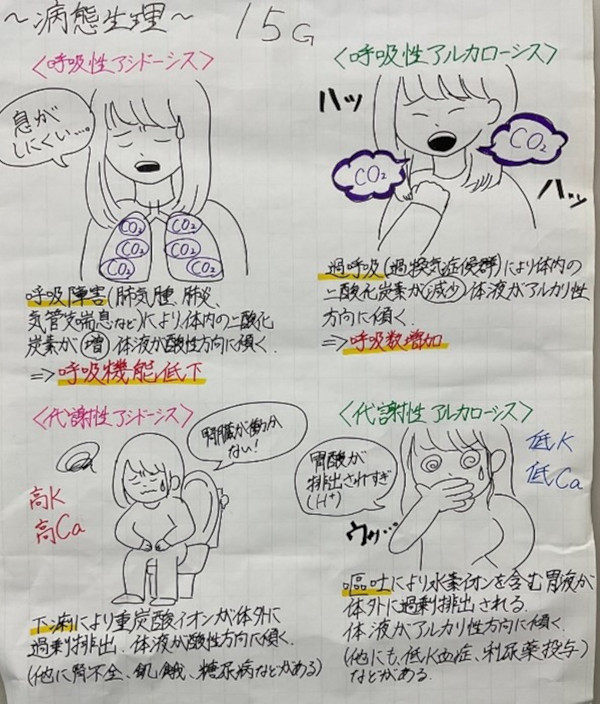 ～病態生理～ 15G
〈呼吸性アシドーシス〉
息が
しにくい…。
CO₂ CO₂
CO₂ CO₂
CO₂ CO₂
呼吸障害(肺気腫、肺炎、
気管支喘息など)により、体内の二酸化
炭素が増 体液が酸性方向に傾く
⇒呼吸機能低下
〈呼吸性アルカローシス〉
ハッ
CO₂
CO₂
ハッ
過呼吸(過換気症候群)により体内の
二酸化炭素が減少 体液がアルカリ性
方向に傾く
⇒呼吸数増加
〈代謝性アシドーシス〉
腎臓が働か
ない!
高K
高Ca
下痢により重炭酸イオンが体外に
過剰排出、体液が酸性方向に傾く
(他に腎不全、飢餓、糖尿病などがある)
〈代謝性アルカローシス〉
胃酸が
排出されすぎ
(H⁺)
低K
低Ca
ウッ…
嘔吐により水素イオンを含む胃液が
体外に過剰排出される
体液がアルカリ性方向に傾く
(他にも低K血症、利尿薬投与)
などがある